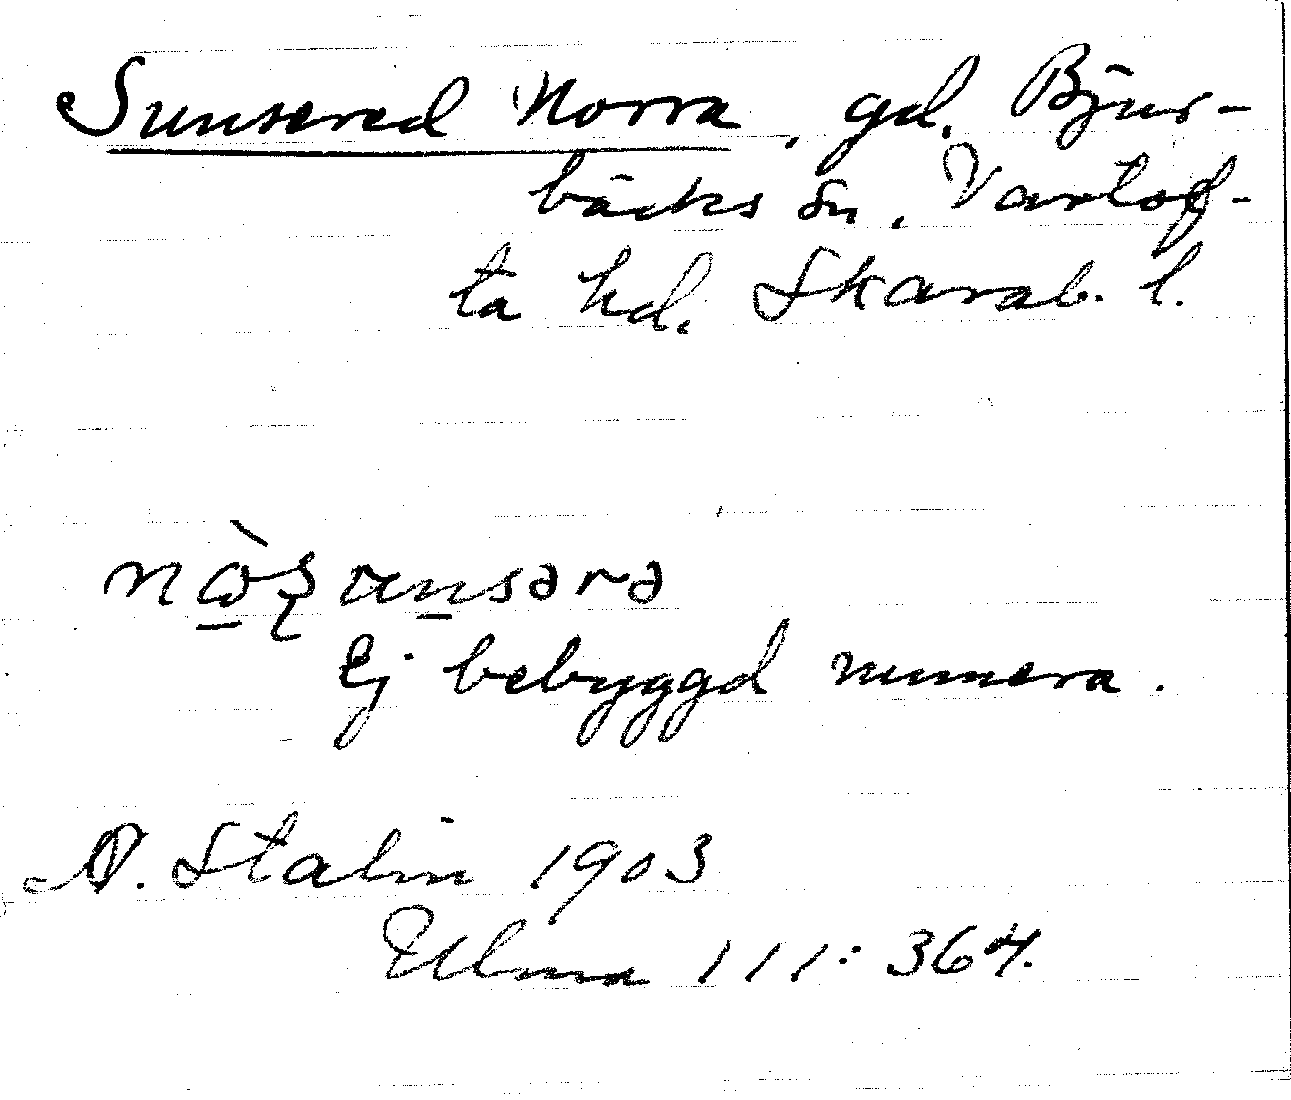 Sunsered Norra, gd. Bjur-
bäcks sn. Vartof-
ta hd. Skarab. l.
Ej bebyggd numera.
Stalin 1903
Ulma 111:364.